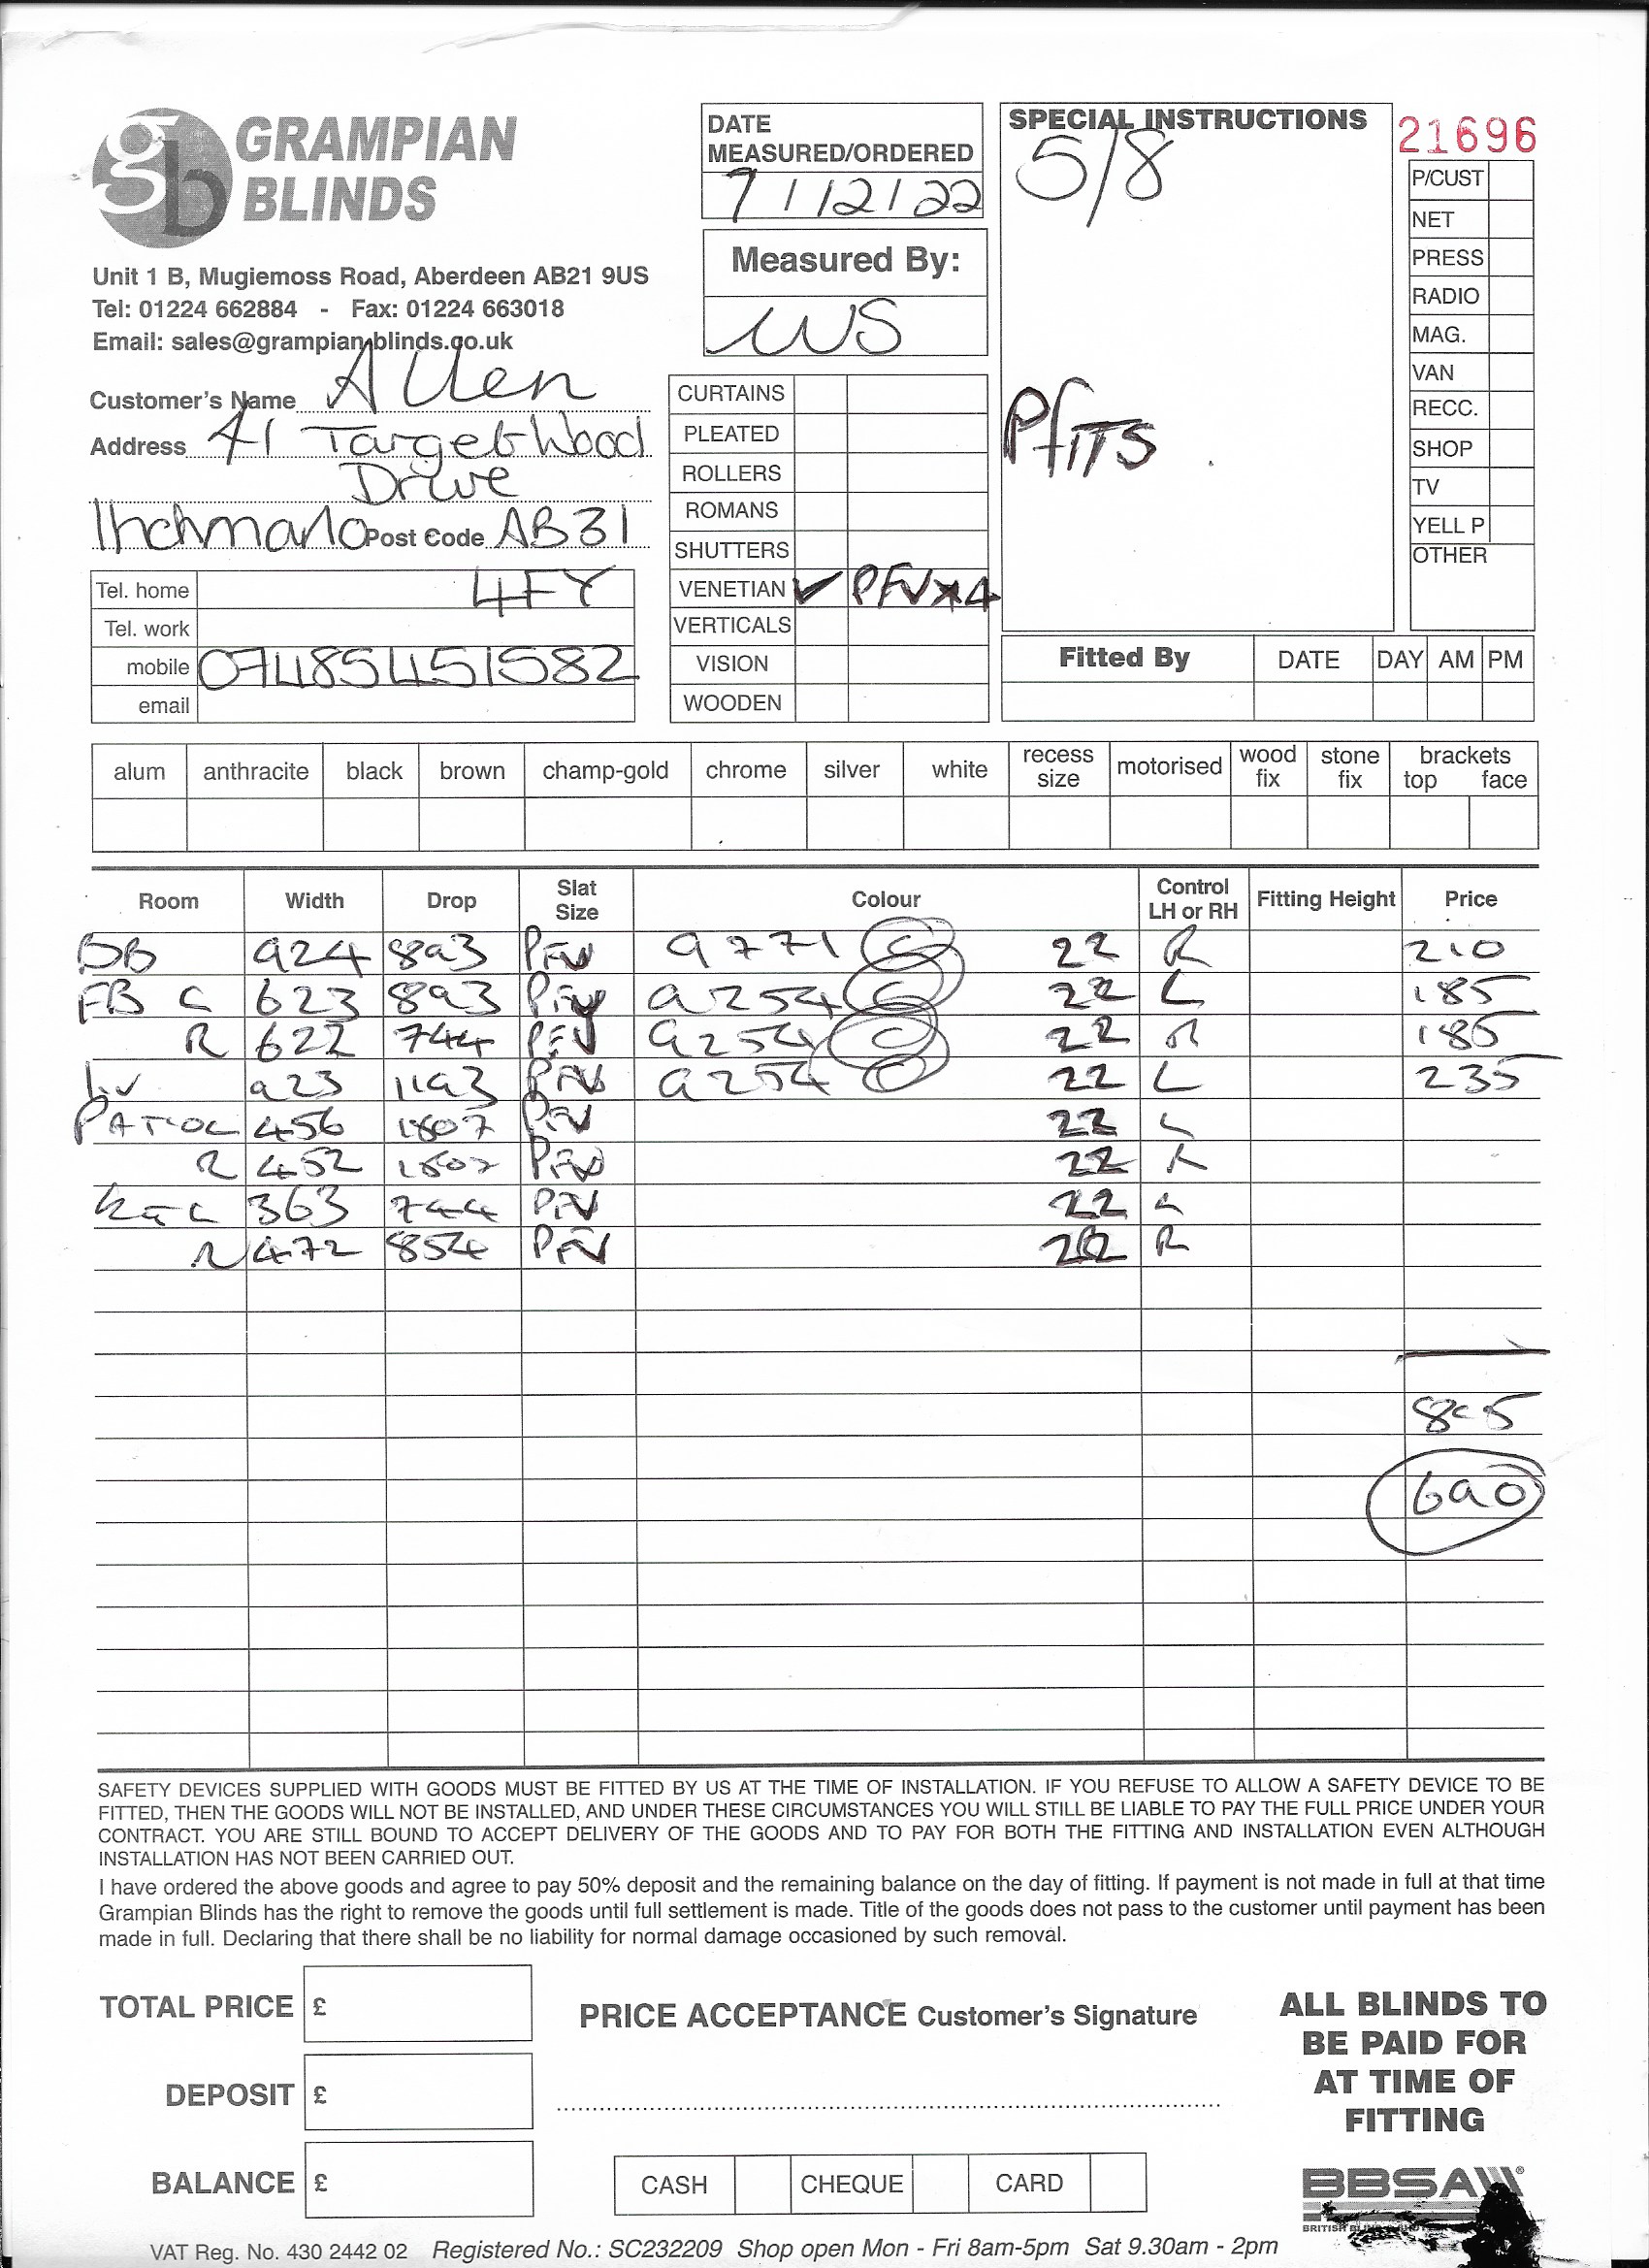 GRAMPIAN
BLINDS
Unit 1 B, Mugiemoss Road, Aberdeen AB21 9US
Tel: 01224 662884 - Fax: 01224 663018
Email: sales@grampianblinds.co.uk
Customer's Name Allen
Address 41 Targetwood
Drive
Inchmarlo Post Code AB31
4FY
Tel. home
Tel. work
mobile 07485451582
email
DATE
MEASURED/ORDERED
9/12/22
Measured By:
WS
CURTAINS
PLEATED
ROLLERS
ROMANS
SHUTTERS
VENETIAN ✓ PFVx4
VERTICALS
VISION
WOODEN
SPECIAL INSTRUCTIONS
5/8
PfITS
21696
P/CUST
NET
PRESS
RADIO
MAG.
VAN
RECC.
SHOP
TV
YELL P
OTHER
Fitted By DATE DAY AM PM
alum anthracite black brown champ-gold chrome silver white recess size motorised wood fix stone fix brackets top face
Room Width Drop Slat Size Colour Control LH or RH Fitting Height Price
DB 924 893 PFV 9771 C 22 R 210
FB L 623 893 PFV 9254 C 22 L 185
R 622 744 PFV 9254 C 22 R 185
LV 923 1193 PFV 9254 C 22 L 235
PATIO L 456 1807 PFV 22 L
R 452 1807 PFV 22 R
Kit L 363 744 PFV 22 L
R 472 854 PFV 22 R
805
690
SAFETY DEVICES SUPPLIED WITH GOODS MUST BE FITTED BY US AT THE TIME OF INSTALLATION. IF YOU REFUSE TO ALLOW A SAFETY DEVICE TO BE
FITTED, THEN THE GOODS WILL NOT BE INSTALLED, AND UNDER THESE CIRCUMSTANCES YOU WILL STILL BE LIABLE TO PAY THE FULL PRICE UNDER YOUR
CONTRACT. YOU ARE STILL BOUND TO ACCEPT DELIVERY OF THE GOODS AND TO PAY FOR BOTH THE FITTING AND INSTALLATION EVEN ALTHOUGH
INSTALLATION HAS NOT BEEN CARRIED OUT.
I have ordered the above goods and agree to pay 50% deposit and the remaining balance on the day of fitting. If payment is not made in full at that time
Grampian Blinds has the right to remove the goods until full settlement is made. Title of the goods does not pass to the customer until payment has been
made in full. Declaring that there shall be no liability for normal damage occasioned by such removal.
TOTAL PRICE £
DEPOSIT £
BALANCE £
PRICE ACCEPTANCE Customer's Signature
CASH CHEQUE CARD
ALL BLINDS TO
BE PAID FOR
AT TIME OF
FITTING
BBSA
BRITISH
VAT Reg. No. 430 2442 02 Registered No.: SC232209 Shop open Mon - Fri 8am-5pm Sat 9.30am - 2pm